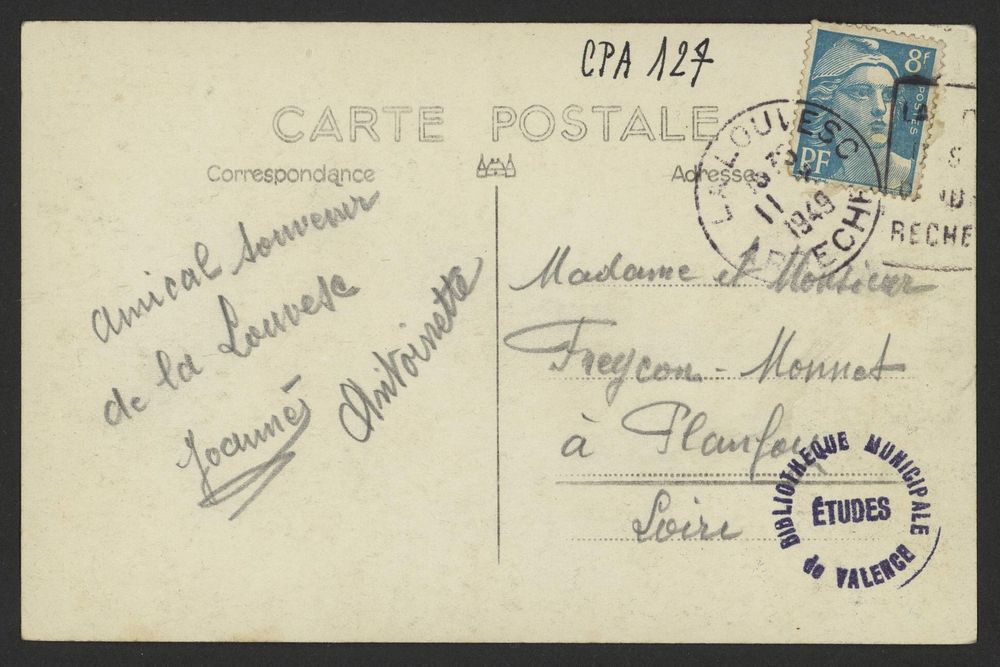 CPA 127
CARTE POSTALE
Correspondance
Adresse
8F
POSTES
RF
LALOUVESC
18 30
11
1949
ARDECHE
RECHE
Amical souvenir
de la Louvesc
Joannès
Antoinette
Madame et Monsieur
Freycon - Monnet
à Planfoy
Loire
BIBLIOTHEQUE MUNICIPALE
ÉTUDES
de VALENCE